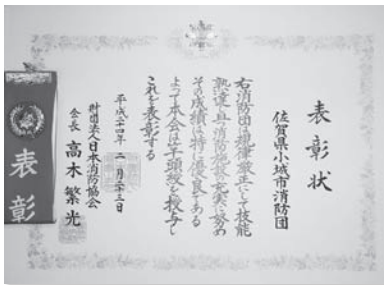 表彰状
佐賀県小城市消防団
右消防団は規律厳正にして技能
熟達且消防施設の充実に努め
その成績は特に優良である
よって本会は竿頭綬を授与し
これを表彰する
平成二十四年 二月二十三日
財団法人日本消防協会
会長 高木繁光
表彰